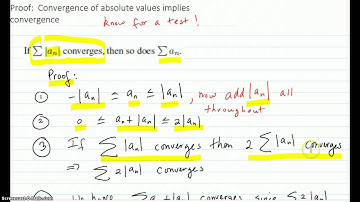 Proof: Convergence of absolute values implies
convergence
know for a test!
If ∑|aₙ| converges, then so does ∑aₙ.
Proof:
① -|aₙ| ≤ aₙ ≤ |aₙ|, now add |aₙ| all
throughout
② 0 ≤ aₙ+|aₙ| ≤ 2|aₙ|
③ If ∑|aₙ| converges then 2∑|aₙ| converges
⇒ ∑2|aₙ| converges
∑ aₙ+|aₙ| converges since ∑2|aₙ|